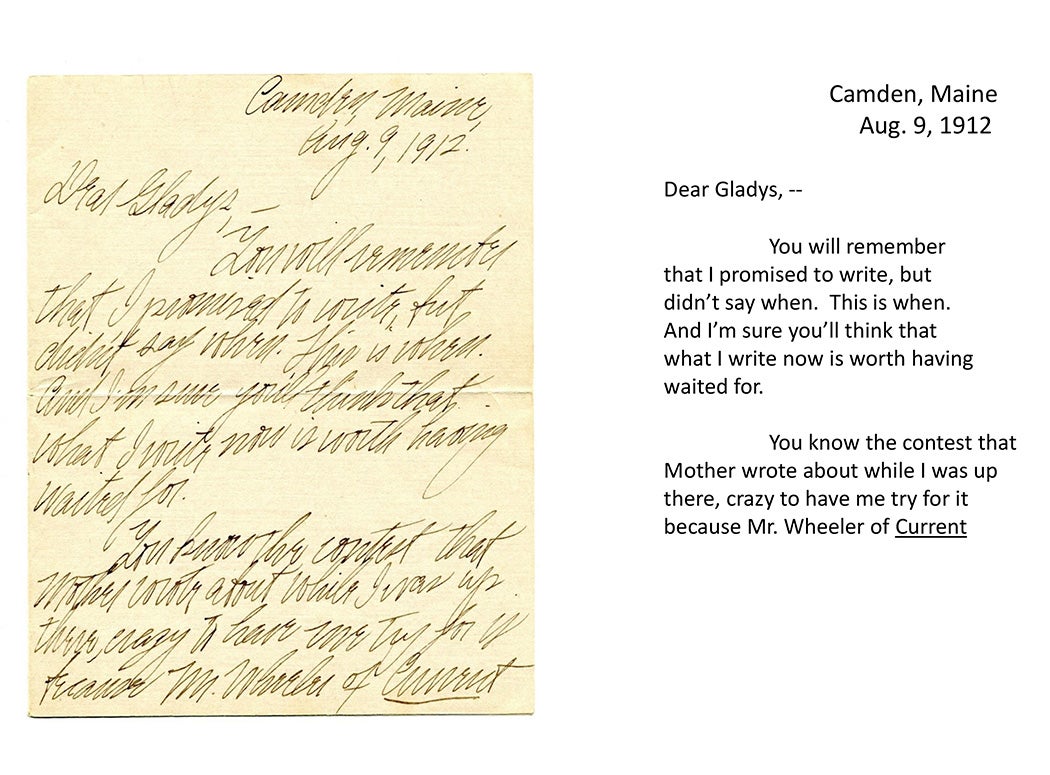 Camden, Maine,
Aug. 9, 1912.
Dear Gladys, —
You will remember
that I promised to write, but
didn't say when. This is when.
And I'm sure you'll think that
what I write now is worth having
waited for.
You know the contest that
Mother wrote about while I was up
there, crazy to have me try for it
because Mr. Wheeler of Current
Camden, Maine
Aug. 9, 1912
Dear Gladys, --
You will remember
that I promised to write, but
didn’t say when.  This is when.
And I’m sure you’ll think that
what I write now is worth having
waited for.
You know the contest that
Mother wrote about while I was up
there, crazy to have me try for it
because Mr. Wheeler of Current